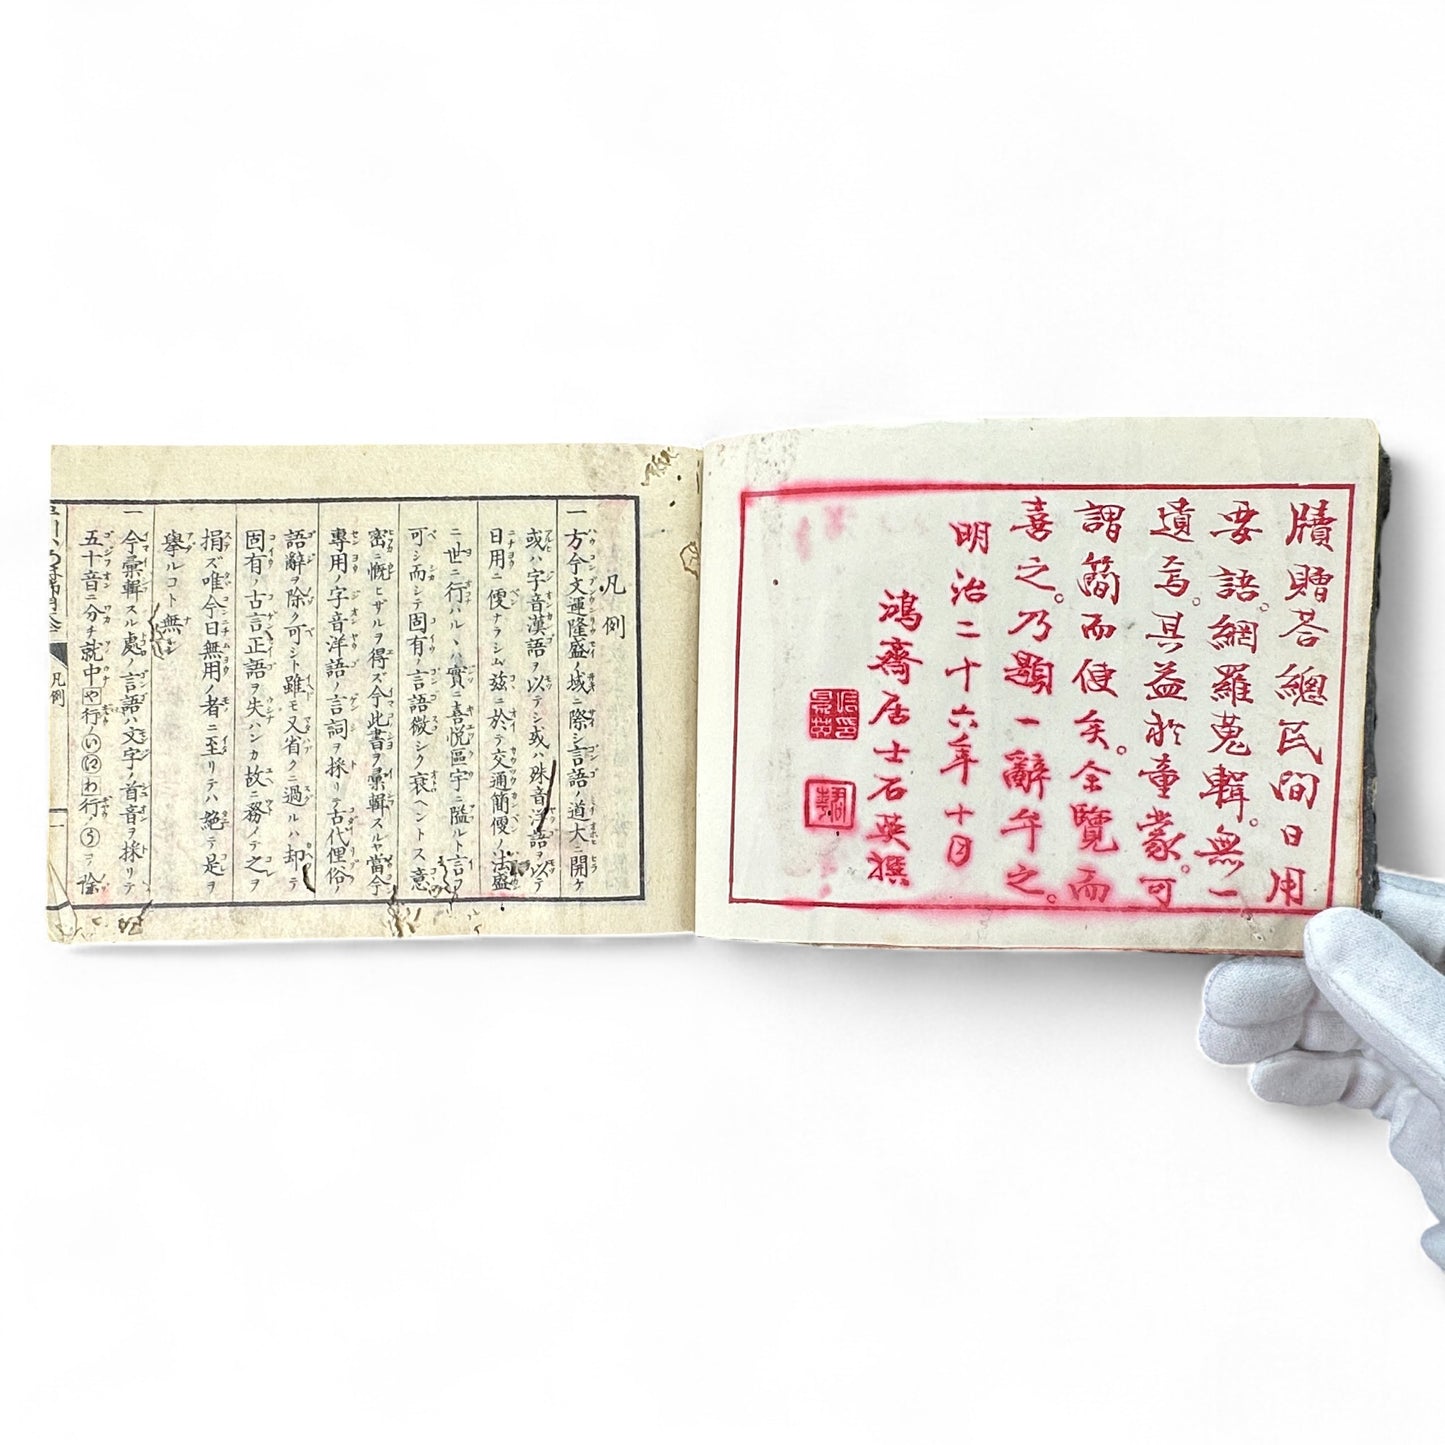 牘贈荅總民間日用
要語。網羅蒐輯。無一
遺焉。其益於童蒙。可
謂簡而便矣。余覽而
喜之。乃題一辭弁之。
明治二十六年十月
鴻齋居士石英撰
凡例
一方今文運隆盛ノ域ニ際シ言語ノ道大ニ開ケ
或ハ字音漢語ヲ以テシ或ハ殊音洋語ヲ以テ
日用ニ便ナラシム茲ニ於テ交通簡便ノ法盛
ニ世ニ行ハル丶ハ實ニ喜悅區宇ニ隘ルト言フ
可シ而シテ固有ノ言語微シク衰ヘントス意
密ニ慨ヒザルヲ得ズ今此書ヲ彙輯スルヤ當今
專用ノ字音洋語ノ言詞ヲ採リ古代俚俗
語辭ヲ除ク可シト雖モ又省クニ過ルハ却テ
固有ノ古言正語ヲ失ハンカ故ニ務メテ之ヲ
捐ズ唯今日無用ノ者ニ至リテハ絕テ是ヲ
擧ルコト無シ
一今彙輯スル處ノ言語ハ文字ノ首音ヲ採リテ
五十音ニ分チ就中や行ノいゑわ行ノうヲ除
凡例
一